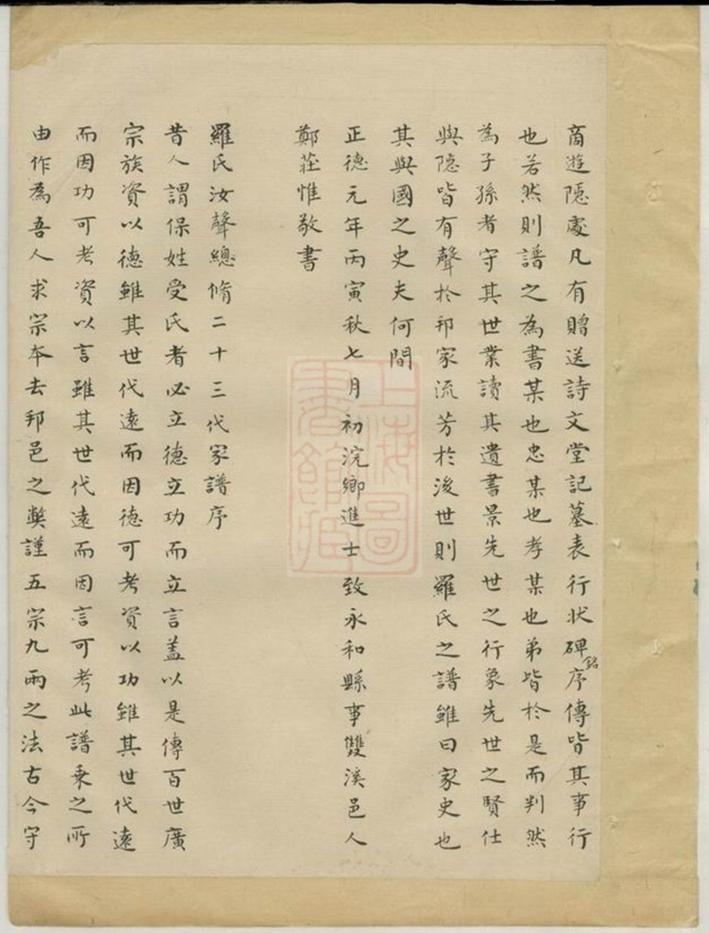 商遊隱處凡有贈送詩文堂記墓表行狀碑銘序傳皆其事行
也若然則譜之為書某也忠某也孝某也弟皆於是而判然
為子孫者守其世業讀其遺書景先世之行象先世之賢仕
與隱皆有聲於邦家流芳於後世則羅氏之譜雖曰家史也
其與國之史夫何間
正德元年丙寅秋七月初浣鄉進士致永和縣事雙溪邑人
鄭莊惟敬書
羅氏汝聲總脩二十三代家譜序
昔人謂保姓受氏者必立德立功而立言蓋以是傳百世廣
宗族資以德雖其世代遠而因德可考資以功雖其世代遠
而因功可考資以言雖其世代遠而因言可考此譜乘之所
由作為吾人求宗本去邦邑之弊謹五宗九兩之法古今守
上海圖書館藏